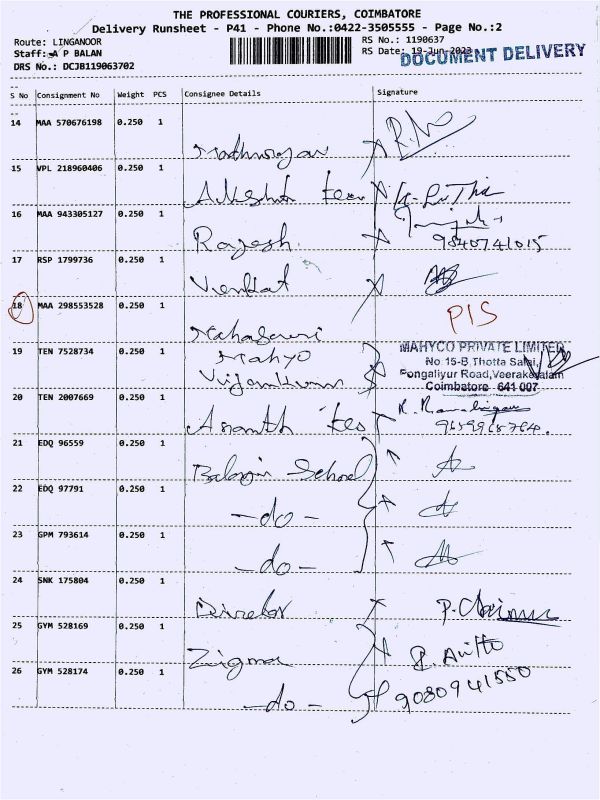 THE PROFESSIONAL COURIERS, COIMBATORE
Delivery Runsheet - P41 - Phone No.:0422-3505555 - Page No.:2
Route: LINGANOOR
RS No.: 1190637
Staff: A P BALAN
RS Date: 19-Jun-2023
DOCUMENT DELIVERY
DRS No.: DCJB119063702
S No Consignment No Weight PCS Consignee Details Signature
14 MAA 570676198 0.250 1
15 VPL 218960406 0.250 1
16 MAA 943305127 0.250 1 Rajesh
9840741015
17 RSP 1799736 0.250 1 Venkat
18 MAA 298553528 0.250 1 PIS
19 TEN 7528734 0.250 1 Mahyo
MAHYCO PRIVATE LIMITED
No 15-B Thotta Salai,
Pongaliyur Road, Veerakeralam
Coimbatore 641 007
20 TEN 2007669 0.250 1 Ananth
21 EDQ 96559 0.250 1 School
22 EDQ 97791 0.250 1 -do-
23 GPM 793614 0.250 1 -do-
24 SNK 175804 0.250 1 Director
25 GYM 528169 0.250 1 Zigma
26 GYM 528174 0.250 1 -do-
9080941550